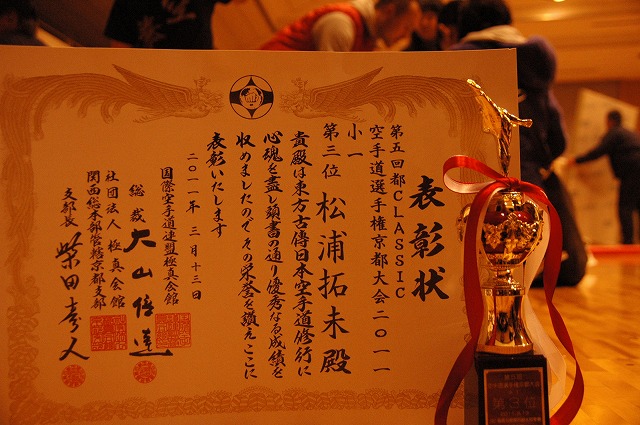 表彰状
第五回都CLASSIC
空手道選手権京都大会二〇一一
小一
第三位 松浦拓未殿
貴殿は東方古傳日本空手道修行に
心魂を盡し頭書の通り優秀なる成績を
収めましたのでその栄誉を讃えここに
表彰いたします
二〇一一年 三月十三日
国際空手道連盟極真会館
総裁 大山倍達
社団法人 極真会館
関西総本部管轄京都支部
支部長 柴田
第3位